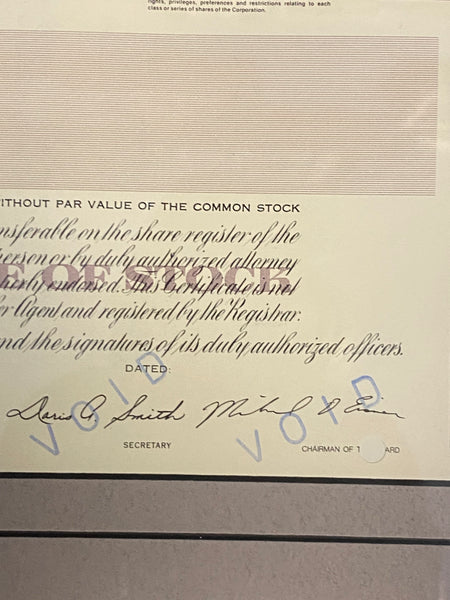 rights, privileges, preferences and restrictions relating to each
class or series of shares of the Corporation.
ITHOUT PAR VALUE OF THE COMMON STOCK
nsferable on the share register of the
person or by duly authorized attorney
E OF STOCK
erly endorsed. This Certificate is not
er Agent and registered by the Registrar.
nd the signatures of its duly authorized officers.
DATED:
VOID
Doris A. Smith Michael D Eisner
VOID
SECRETARY
CHAIRMAN OF T ARD